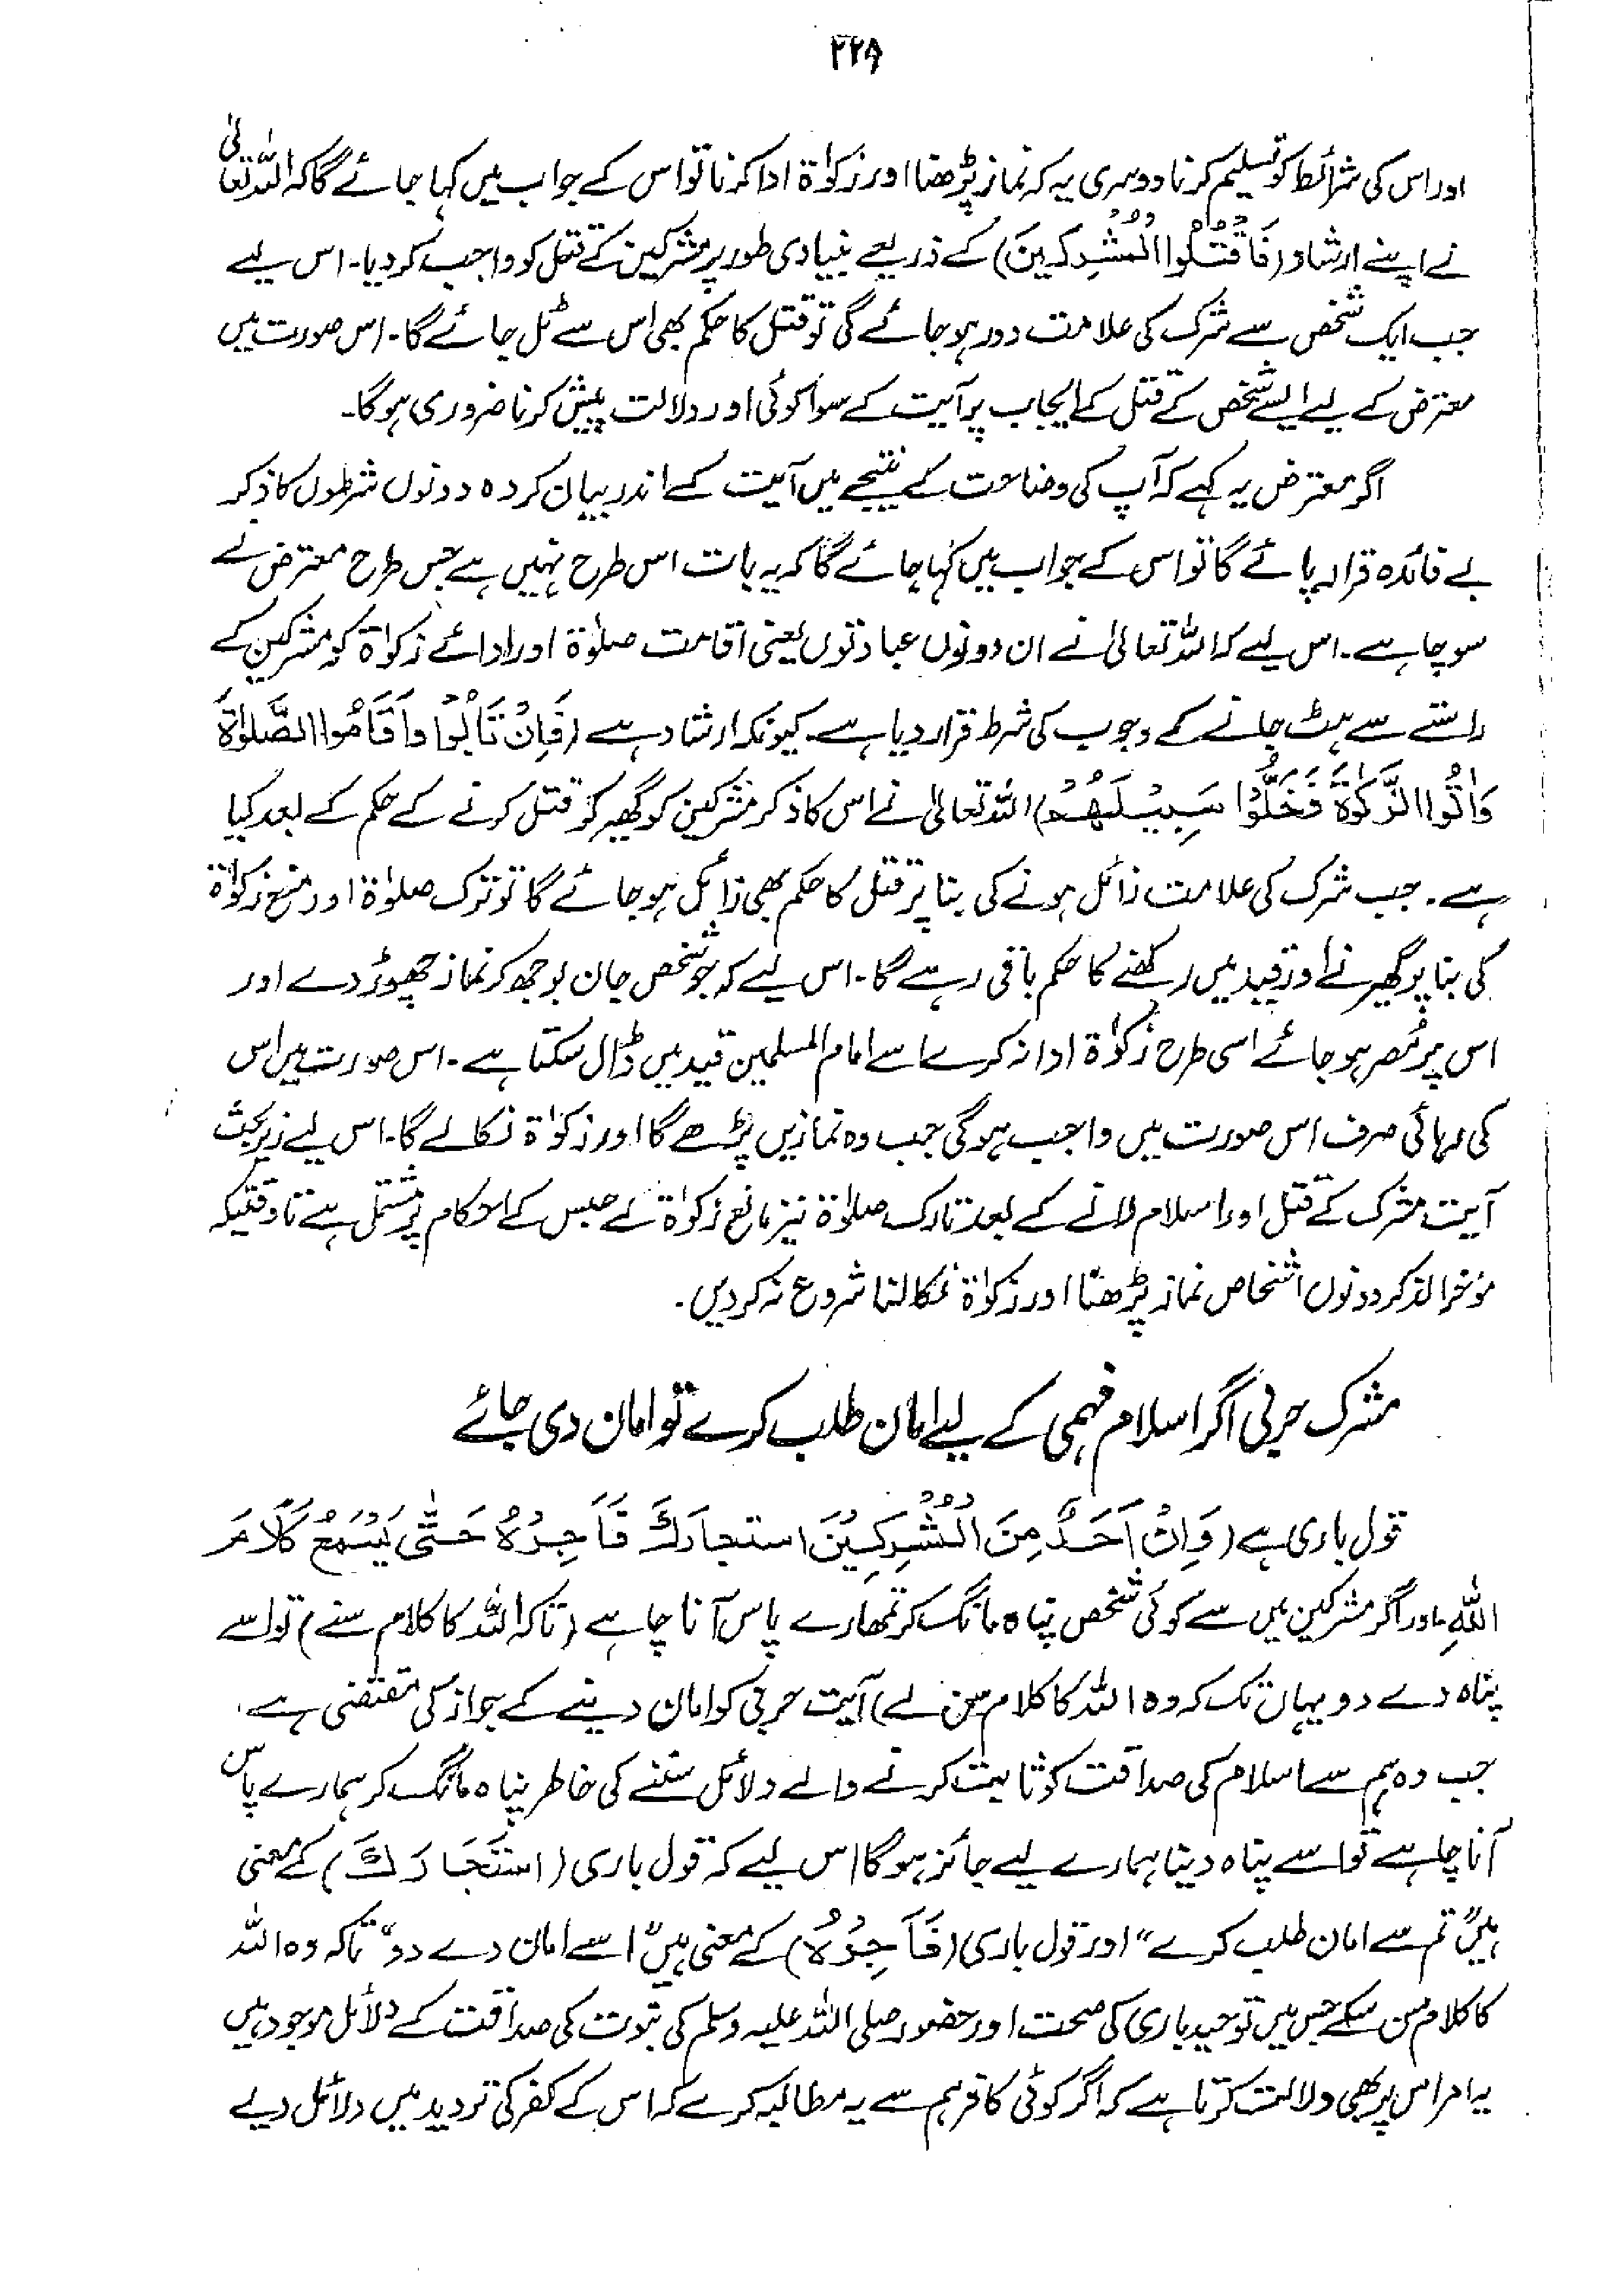 ۲۲۸
اور اس کی شرائط کو تسلیم کرنا دوسری یہ کہ نماز پڑھنا اور زکوٰۃ ادا کرنا تو اس کے جواب میں کہا جائے گا کہ اللہ تعالیٰ
نے اپنے ارشاد (فَاقْتُلُوا الْمُشْرِكِينَ) کے ذریعے بنیادی طور پر مشرکین کے قتل کو واجب کر دیا۔ اس لیے
جب ایک شخص سے شرک کی علامت دور ہو جائے گی تو قتل کا حکم بھی اس سے ٹل جائے گا۔ اس صورت میں
معترض کے لیے ایسے شخص کے قتل کے ایجاب پر آیت کے سوا کوئی اور دلالت پیش کرنا ضروری ہوگا۔
اگر معترض یہ کہے کہ آپ کی وضاحت کے نتیجے میں آیت کے اندر بیان کردہ دونوں شرطوں کا ذکر
بے فائدہ قرار پائے گا تو اس کے جواب میں کہا جائے گا کہ یہ بات اس طرح نہیں ہے جس طرح معترض نے
سوچا ہے۔ اس لیے کہ اللہ تعالیٰ نے ان دونوں عبادتوں یعنی اقامت صلوٰۃ اور ادائے زکوٰۃ کو مشرکین کے
راستے سے ہٹ جانے کے وجوب کی شرط قرار دیا ہے۔ کیونکہ ارشاد ہے (فَاِنْ تَابُوْا وَاَقَامُوا الصَّلٰوةَ
وَاٰتُوا الزَّكٰوةَ فَخَلُّوْا سَبِيْلَهُمْ) اللہ تعالیٰ نے اس کا ذکر مشرکین کو گھیر کر قتل کرنے کے حکم کے بعد کیا
ہے۔ جب شرک کی علامت زائل ہونے کی بنا پر قتل کا حکم بھی زائل ہو جائے گا تو ترک صلوٰۃ اور منع زکوٰۃ
کی بنا پر گھیرنے اور قید میں رکھنے کا حکم باقی رہے گا۔ اس لیے کہ جو شخص جان بوجھ کر نماز چھوڑ دے اور
اس پر مُصر ہو جائے اسی طرح زکوٰۃ ادا نہ کرے اسے امام المسلمین قید میں ڈال سکتا ہے۔ اس صورت میں اس
کی رہائی صرف اس صورت میں واجب ہوگی جب وہ نمازیں پڑھے گا اور زکوٰۃ نکالے گا۔ اس لیے زیر بحث
آیت مشرک کے قتل اور اسلام لانے کے بعد تارک صلوٰۃ نیز مانع زکوٰۃ کے حبس کے احکام پر مشتمل ہے تاوقتیکہ
مؤخر الذکر دونوں اشخاص نماز پڑھنا اور زکوٰۃ نکالنا شروع نہ کر دیں۔
مشرک حربی اگر اسلام فہمی کے لیے امان طلب کرے تو امان دی جائے
قول باری ہے (وَاِنْ اَحَدٌ مِنَ الْمُشْرِكِيْنَ اسْتَجَارَكَ فَاَجِرْهُ حَتّٰى يَسْمَعَ كَلَامَ
اللّٰهِ۔ اور اگر مشرکین میں سے کوئی شخص پناہ مانگ کر تمھارے پاس آنا چاہے (تاکہ اللہ کا کلام سنے) تو اسے
پناہ دے دو یہاں تک کہ وہ اللہ کا کلام سن لے) آیت حربی کو امان دینے کے جواز کی مقتضی ہے۔
جب وہ ہم سے اسلام کی صداقت کو ثابت کرنے والے دلائل سننے کی خاطر پناہ مانگ کر ہمارے پاس
آنا چاہے تو اسے پناہ دینا ہمارے لیے جائز ہوگا اس لیے کہ قول باری (اسْتَجَارَكَ) کے معنی
ہیں "تم سے امان طلب کرے" اور قول باری (فَاَجِرْهُ) کے معنی ہیں "اسے امان دے دو" تاکہ وہ اللہ
کا کلام سن سکے جس میں توحید باری کی صحت اور حضور صلی اللہ علیہ وسلم کی نبوت کی صداقت کے دلائل موجود ہیں
یہ امر اس پر بھی دلالت کرتا ہے کہ اگر کوئی کافر ہم سے یہ مطالبہ کرے کہ اس کے کفر کی تردید میں دلائل دیے